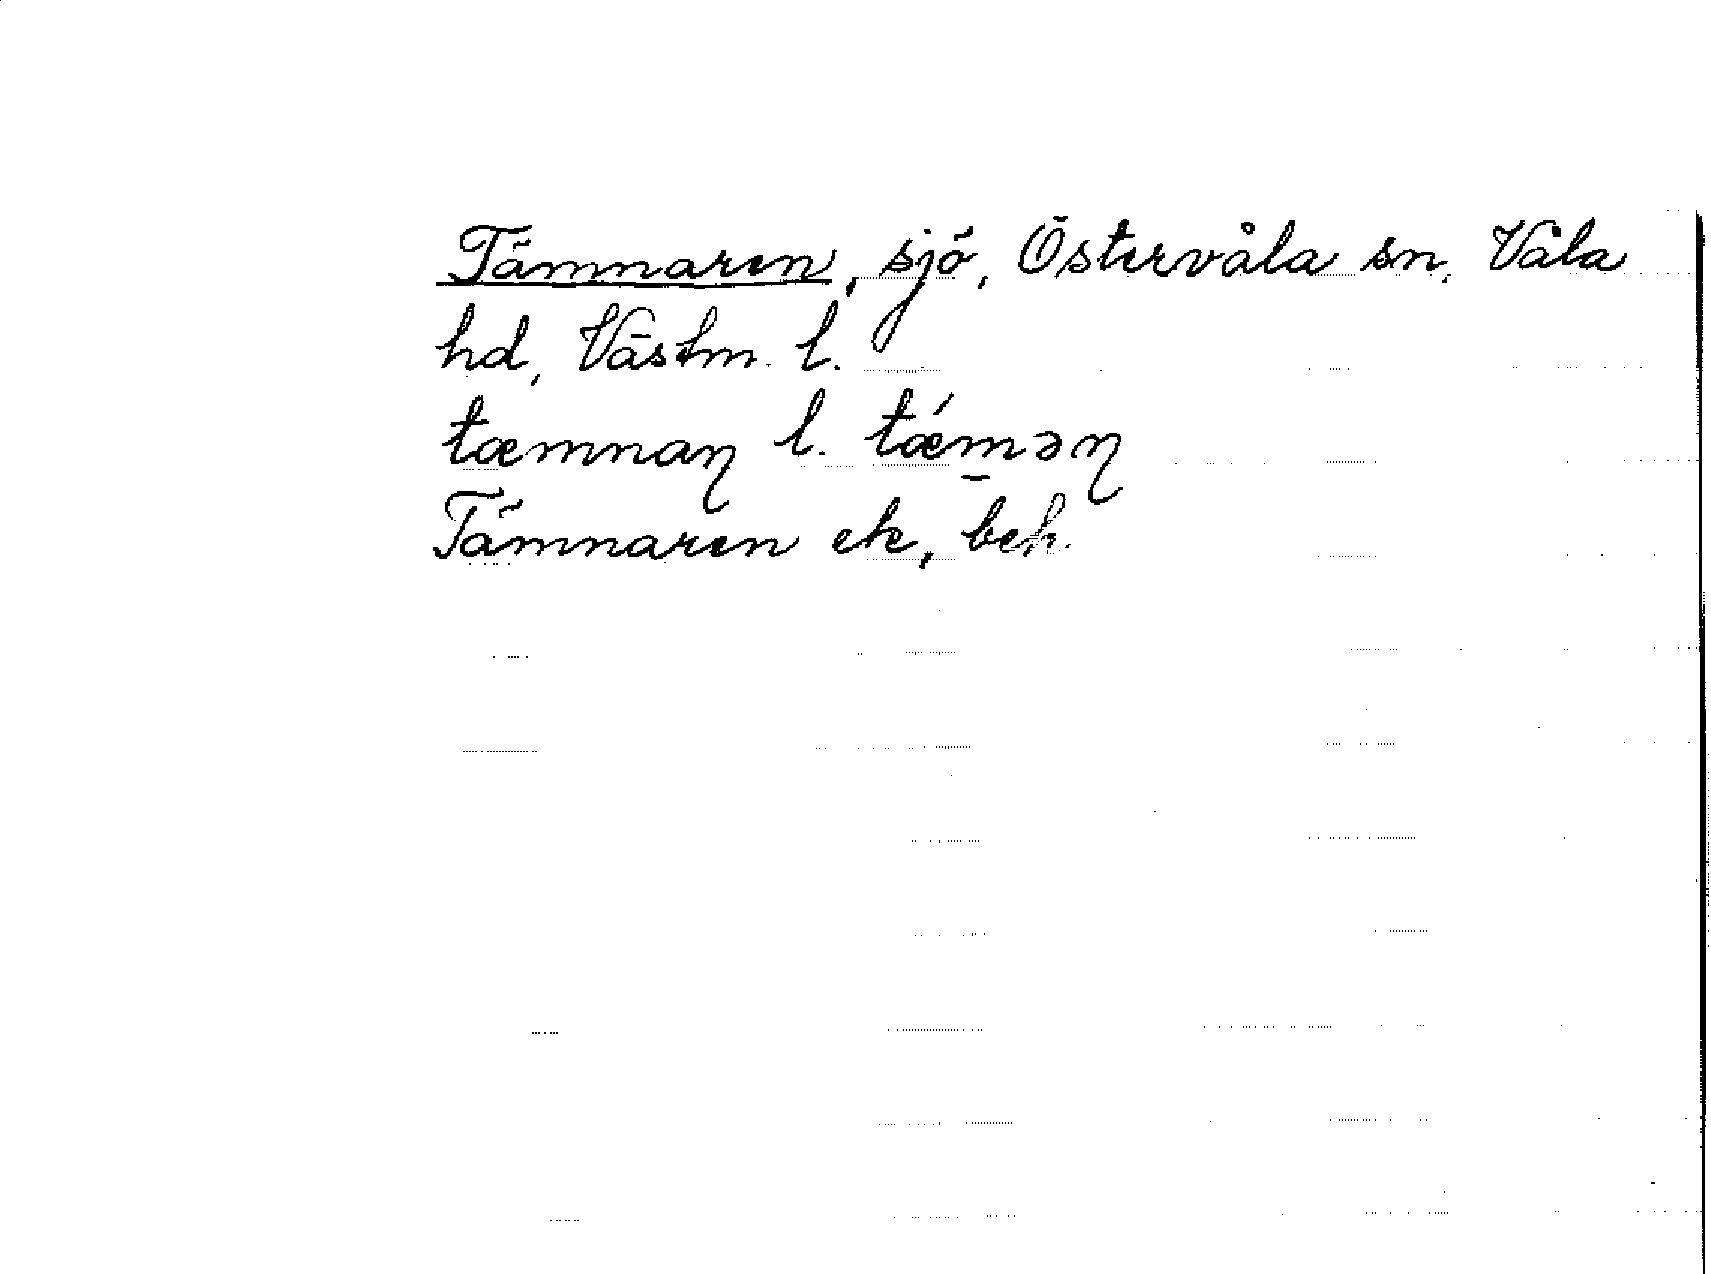 Tämnaren, sjö, Östervåla sn, Våla
hd, Västm. l.
tæmnaɳ l. tǽm̱əɳ
Tämnaren ek, beh.